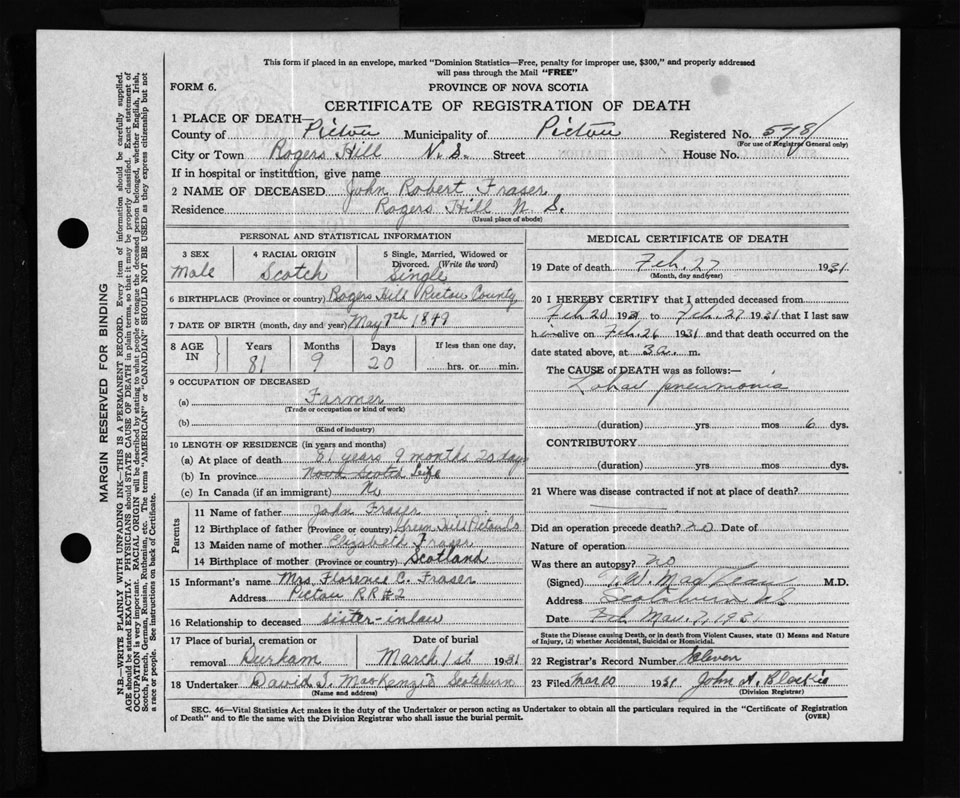 This form if placed in an envelope, marked "Dominion Statistics—Free, penalty for improper use, $300," and properly addressed
will pass through the Mail "FREE"
FORM 6.
PROVINCE OF NOVA SCOTIA
CERTIFICATE OF REGISTRATION OF DEATH
1 PLACE OF DEATH—
County of Pictou Municipality of Pictou Registered No. 578
(For use of Registrar General only)
City or Town Rogers Hill N.S. Street House No.
If in hospital or institution, give name
2 NAME OF DECEASED John Robert Fraser
Residence Rogers Hill N.S.
(Usual place of abode)
PERSONAL AND STATISTICAL INFORMATION
3 SEX 4 RACIAL ORIGIN 5 Single, Married, Widowed or
Divorced. (Write the word)
Male Scotch Single
6 BIRTHPLACE (Province or country) Rogers Hill Pictou County
7 DATE OF BIRTH (month, day and year) May 7th 1849
8 AGE IN Years Months Days If less than one day,
81 9 20 hrs. or min.
9 OCCUPATION OF DECEASED
(a) Farmer
(Trade or occupation or kind of work)
(b)
(Kind of industry)
10 LENGTH OF RESIDENCE (in years and months)
(a) At place of death 81 years 9 months 20 days
(b) In province Nova Scotia Life
(c) In Canada (if an immigrant) No
Parents
11 Name of father John Fraser
12 Birthplace of father (Province or country) Green Hill Pictou
13 Maiden name of mother Elizabeth Fraser
14 Birthplace of mother (Province or country) Scotland
15 Informant's name Mrs. Florence C. Fraser
Address Pictou RR#2
16 Relationship to deceased sister-inlaw
17 Place of burial, cremation or Date of burial
removal Durham March 1st 1931
18 Undertaker David J. MacKenzie Scotsburn
(Name and address)
MEDICAL CERTIFICATE OF DEATH
19 Date of death Feb. 27 1931
(Month, day and year)
20 I HEREBY CERTIFY that I attended deceased from
Feb 20 1931 to Feb. 27 1931 that I last saw
him alive on Feb. 26 1931 and that death occurred on the
date stated above, at 3 a. m.
The CAUSE of DEATH was as follows:—
Lobar pneumonia
(duration) yrs mos 6 dys.
CONTRIBUTORY
(duration) yrs mos dys.
21 Where was disease contracted if not at place of death?
Did an operation precede death? no Date of
Nature of operation
Was there an autopsy? no
(Signed) M.D.
Address Scotsburn NS
Date Mar. 7, 1931
State the Disease causing Death, or in death from Violent Causes, state (1) Means and Nature
of Injury, (2) whether Accidental, Suicidal or Homicidal.
22 Registrar's Record Number Eleven
23 Filed Mar 10 1931 John A. Blaikie
(Division Registrar)
SEC. 46—Vital Statistics Act makes it the duty of the Undertaker or person acting as Undertaker to obtain all the particulars required in the "Certificate of Registration
of Death" and to file the same with the Division Registrar who shall issue the burial permit.
(OVER)
MARGIN RESERVED FOR BINDING
N.B.—WRITE PLAINLY WITH UNFADING INK—THIS IS A PERMANENT RECORD. Every item of information should be carefully supplied.
AGE should be stated EXACTLY. PHYSICIANS should STATE CAUSE OF DEATH in plain terms, so that it may be properly classified. Exact statement of
OCCUPATION is very important. RACIAL ORIGIN will be described by stating to what people or tongue the deceased person belonged, whether English, Irish,
Scotch, French, German, Russian, Ruthenian, etc. The terms "AMERICAN" or "CANADIAN" SHOULD NOT BE USED as they express citizenship but not
a race or people. See instructions on back of Certificate.